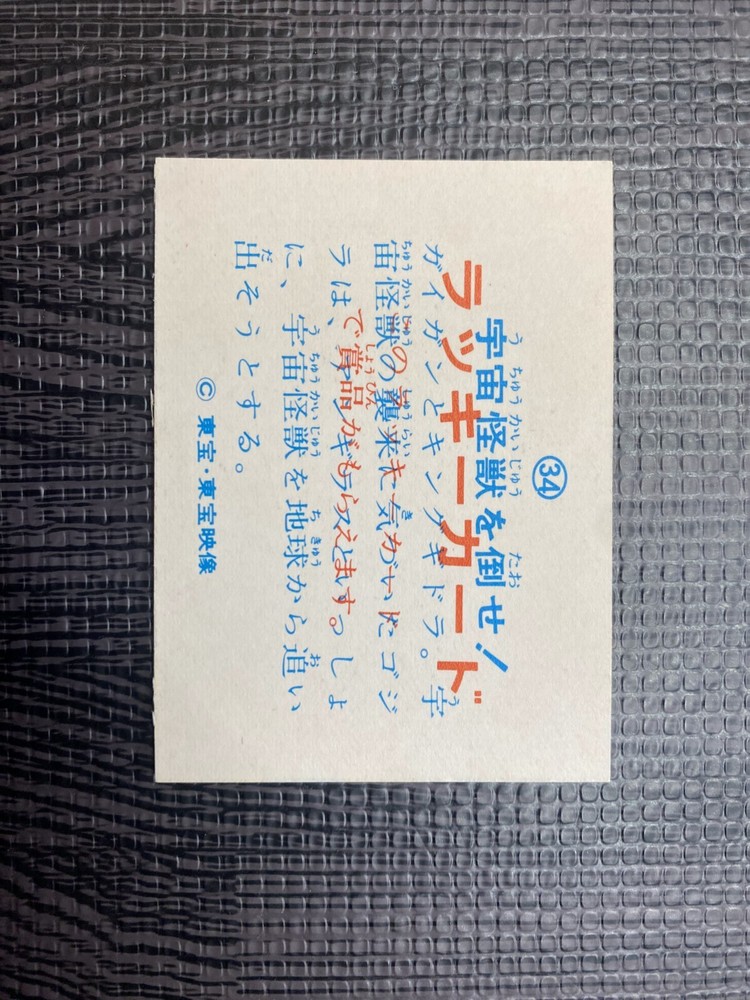 ㉞
宇宙怪獣を倒せ!
ラッキーカード
ガイガンとキングギドラ。宇
宙怪獣の襲来に気がついたゴジ
ラは、アンギラスといっしょ
に、宇宙怪獣を地球から追い
出そうとする。
で賞品がもらえます。
© 東宝・東宝映像